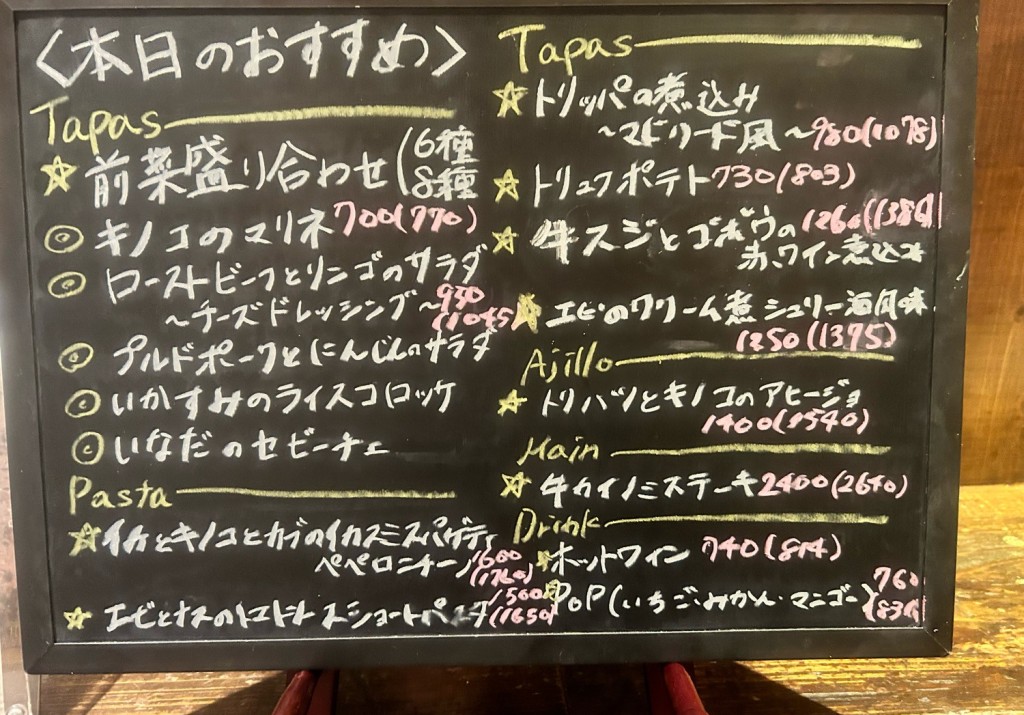 〈本日のおすすめ〉
Tapas
☆前菜盛り合わせ(6種
8種
◎キノコのマリネ 700(770)
◎ローストビーフとリンゴのサラダ
～チーズドレッシング～ 950
(1045)
◎プルドポークとにんじんのサラダ
◎いかすみのライスコロッケ
◎いなだのセビーチェ
Pasta
☆イカとキノコとカブのイカスミスパゲティ
ペペロンチーノ 1600
(1760)
☆エビとナスのトマトソースショートパスタ 1500
(1650)
Tapas
☆トリッパの煮込み
～マドリード風～ 980(1078)
☆トリュフポテト 730(803)
☆牛スジとゴボウの 1260(1386)
赤ワイン煮込み
☆エビのクリーム煮 シェリー酒風味
1250(1375)
Ajillo
☆トリハツとキノコのアヒージョ
1400(1540)
Main
☆牛カイノミステーキ 2400(2640)
Drink
☆ホットワイン 740(814)
☆POP(いちご・みかん・マンゴー) 760
(836)